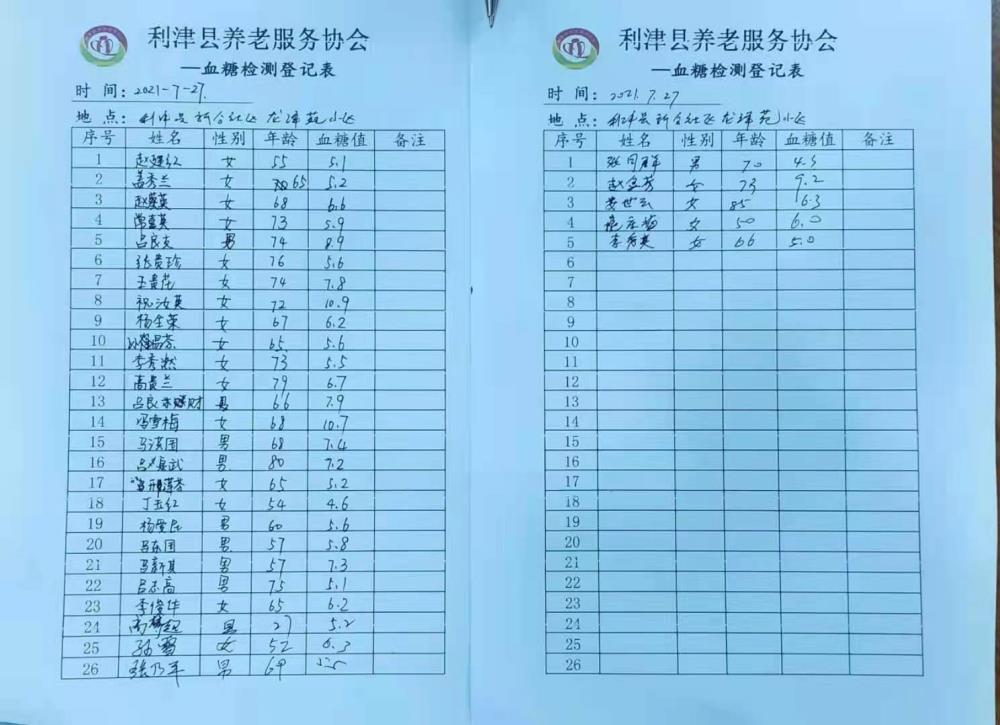 利津县养老服务协会
—血糖检测登记表
时 间：2021-7-27.
地 点：利津县 社区 龙泽苑小区
序号 姓名 性别 年龄 血糖值 备注
1 女 55 5.1
2 孟秀兰 女 65 5.2
3 女 68 6.6
4 女 73 5.9
5 吕良友 男 74 8.9
6 张贵珍 女 76 5.6
7 王贵花 女 74 7.8
8 祝汝英 女 72 10.9
9 杨全荣 女 67 6.2
10 女 65 5.6
11 李秀 女 73 5.5
12 高贵兰 女 79 6.7
13 吕良 财 男 66 7.9
14 冯雪梅 女 68 10.7
15 马洪国 男 68 7.4
16 男 80 7.2
17 女 65 5.2
18 丁玉红 女 54 4.6
19 杨爱民 男 60 5.6
20 男 57 5.8
21 马新其 男 57 7.3
22 吕志高 男 75 5.1
23 李俊华 女 65 6.2
24 男 27 5.2
25 女 52 6.3
26 张乃军 男 69
利津县养老服务协会
—血糖检测登记表
时 间：2021.7.27
地 点：利津县 社区 龙泽苑小区
序号 姓名 性别 年龄 血糖值 备注
1 男 70
2 赵金芳 女 73 9.2
3 女 85 6.3
4 女 50 6.0
5 李秀英 女 66 5.0
6
7
8
9
10
11
12
13
14
15
16
17
18
19
20
21
22
23
24
25
26